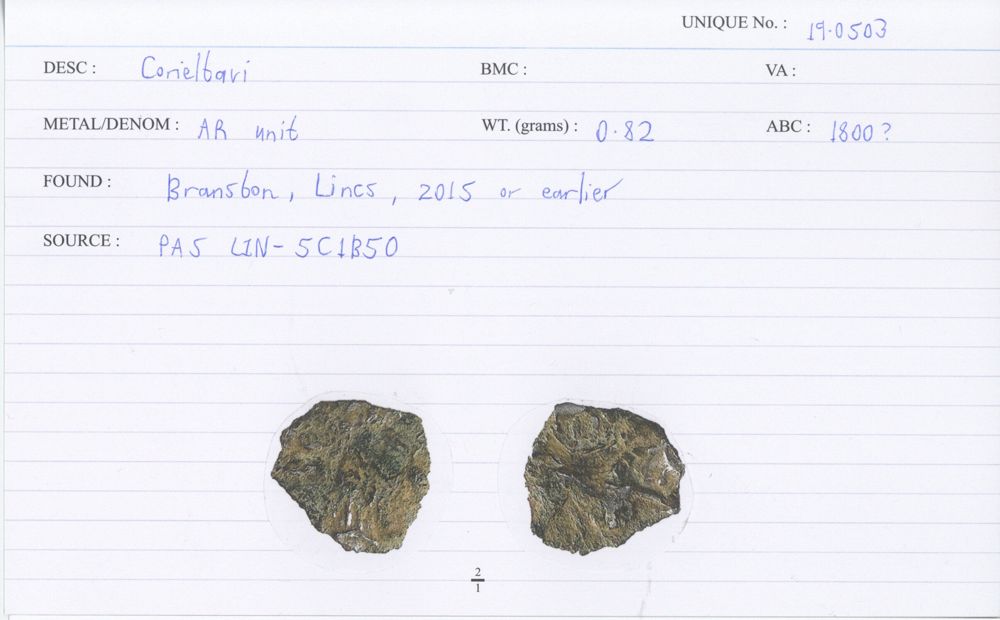 UNIQUE No. : 19.0503
DESC : Corieltavi BMC : VA :
METAL/DENOM : AR unit WT. (grams) : 0.82 ABC : 1800?
FOUND : Branston, Lincs, 2015 or earlier
SOURCE : PAS LIN-5C1B50
2
1